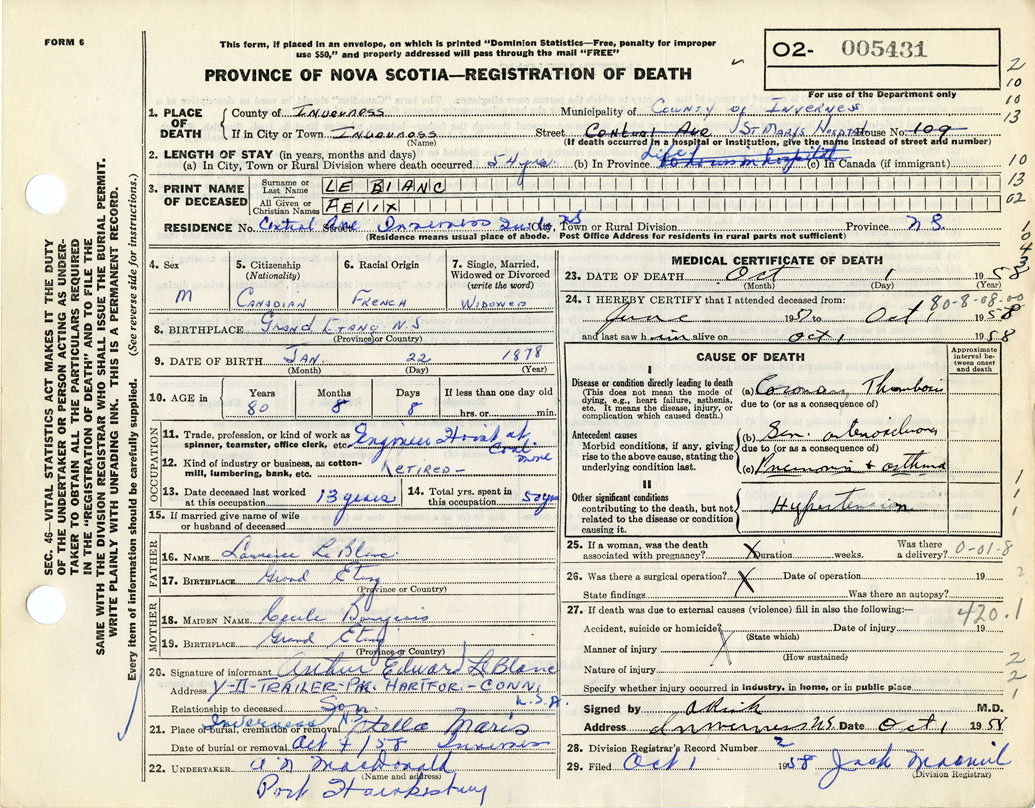 FORM 6
This form, if placed in an envelope, on which is printed "Dominion Statistics—Free, penalty for improper
use $50," and properly addressed will pass through the mail "FREE"
PROVINCE OF NOVA SCOTIA—REGISTRATION OF DEATH
02- 005431
For use of the Department only
2
10
10
13
10
13
02
SEC. 46—VITAL STATISTICS ACT MAKES IT THE DUTY
OF THE UNDERTAKER OR PERSON ACTING AS UNDER-
TAKER TO OBTAIN ALL THE PARTICULARS REQUIRED
IN THE "REGISTRATION OF DEATH" AND TO FILE THE
SAME WITH THE DIVISION REGISTRAR WHO SHALL ISSUE THE BURIAL PERMIT.
WRITE PLAINLY WITH UNFADING INK. THIS IS A PERMANENT RECORD.
Every item of information should be carefully supplied. (See reverse side for instructions.)
1. PLACE OF DEATH
County of Inverness Municipality of County of Inverness
If in City or Town Inverness Street Central Ave St Marys Hospital House No. 109
(Name) (If death occurred in a hospital or institution, give the name instead of street and number)
2. LENGTH OF STAY (in years, months and days)
(a) In City, Town or Rural Division where death occurred 54 yrs (b) In Province Life (c) In Canada (if immigrant)
3. PRINT NAME OF DECEASED
Surname or Last Name LE BLANC
All Given or Christian Names FELIX
RESIDENCE No. Central Ave Street Inverness City, Town or Rural Division Province N.S.
(Residence means usual place of abode. Post Office Address for residents in rural parts not sufficient)
4. Sex M
5. Citizenship (Nationality) Canadian
6. Racial Origin French
7. Single, Married, Widowed or Divorced (write the word) Widower
8. BIRTHPLACE Grand Etang N.S
(Province or Country)
9. DATE OF BIRTH Jan. 22 1878
(Month) (Day) (Year)
10. AGE in Years 80 Months 8 Days 8 If less than one day old
hrs. or min.
OCCUPATION
11. Trade, profession, or kind of work as spinner, teamster, office clerk, etc. Engineer Hoist at Coal mine
12. Kind of industry or business, as cotton-mill, lumbering, bank, etc. Retired-
13. Date deceased last worked at this occupation 13 years
14. Total yrs. spent in this occupation 50 yrs
15. If married give name of wife or husband of deceased
FATHER
16. NAME Lawrence Le Blanc
17. BIRTHPLACE Grand Etang
(Province or Country)
MOTHER
18. MAIDEN NAME Cecile Bourgeois
19. BIRTHPLACE Grand Etang
(Province or Country)
20. Signature of informant Arthur Edward LeBlanc
Address TRAILER-PK. HARTFOR-CONN. U.S.A.
Relationship to deceased Son
21. Place of burial, cremation or removal Inverness NS Stella Maris
Date of burial or removal Oct 4/58 Inverness
22. UNDERTAKER MacDonald
(Name and address)
Port Hawkesbury
MEDICAL CERTIFICATE OF DEATH
23. DATE OF DEATH Oct 1 1958
(Month) (Day) (Year)
80-8-08-00
24. I HEREBY CERTIFY that I attended deceased from:
June 195 to Oct 1 1958
and last saw him alive on Oct 1 1958
CAUSE OF DEATH
Approximate interval between onset and death
I
Disease or condition directly leading to death
(This does not mean the mode of dying, e.g., heart failure, asthenia, etc. It means the disease, injury, or complication which caused death.)
(a) Coronary Thrombosis
due to (or as a consequence of)
Antecedent causes
Morbid conditions, if any, giving rise to the above cause, stating the underlying condition last.
(b) Gen. arteriosclerosis
due to (or as a consequence of)
(c) Pneumonia + asthma
II
Other significant conditions
contributing to the death, but not related to the disease or condition causing it.
Hypertension
25. If a woman, was the death associated with pregnancy? X Duration weeks. Was there a delivery? 0-01-8
26. Was there a surgical operation? X Date of operation 19
State findings Was there an autopsy?
27. If death was due to external causes (violence) fill in also the following:—
420.1
Accident, suicide or homicide? Date of injury 19
(State which)
Manner of injury X
(How sustained)
Nature of injury
Specify whether injury occurred in industry, in home, or in public place
Signed by M.D.
Address Inverness N.S. Date Oct 1 1958
28. Division Registrar's Record Number 2
29. Filed Oct 1 1958 Jack MacNeil
(Division Registrar)